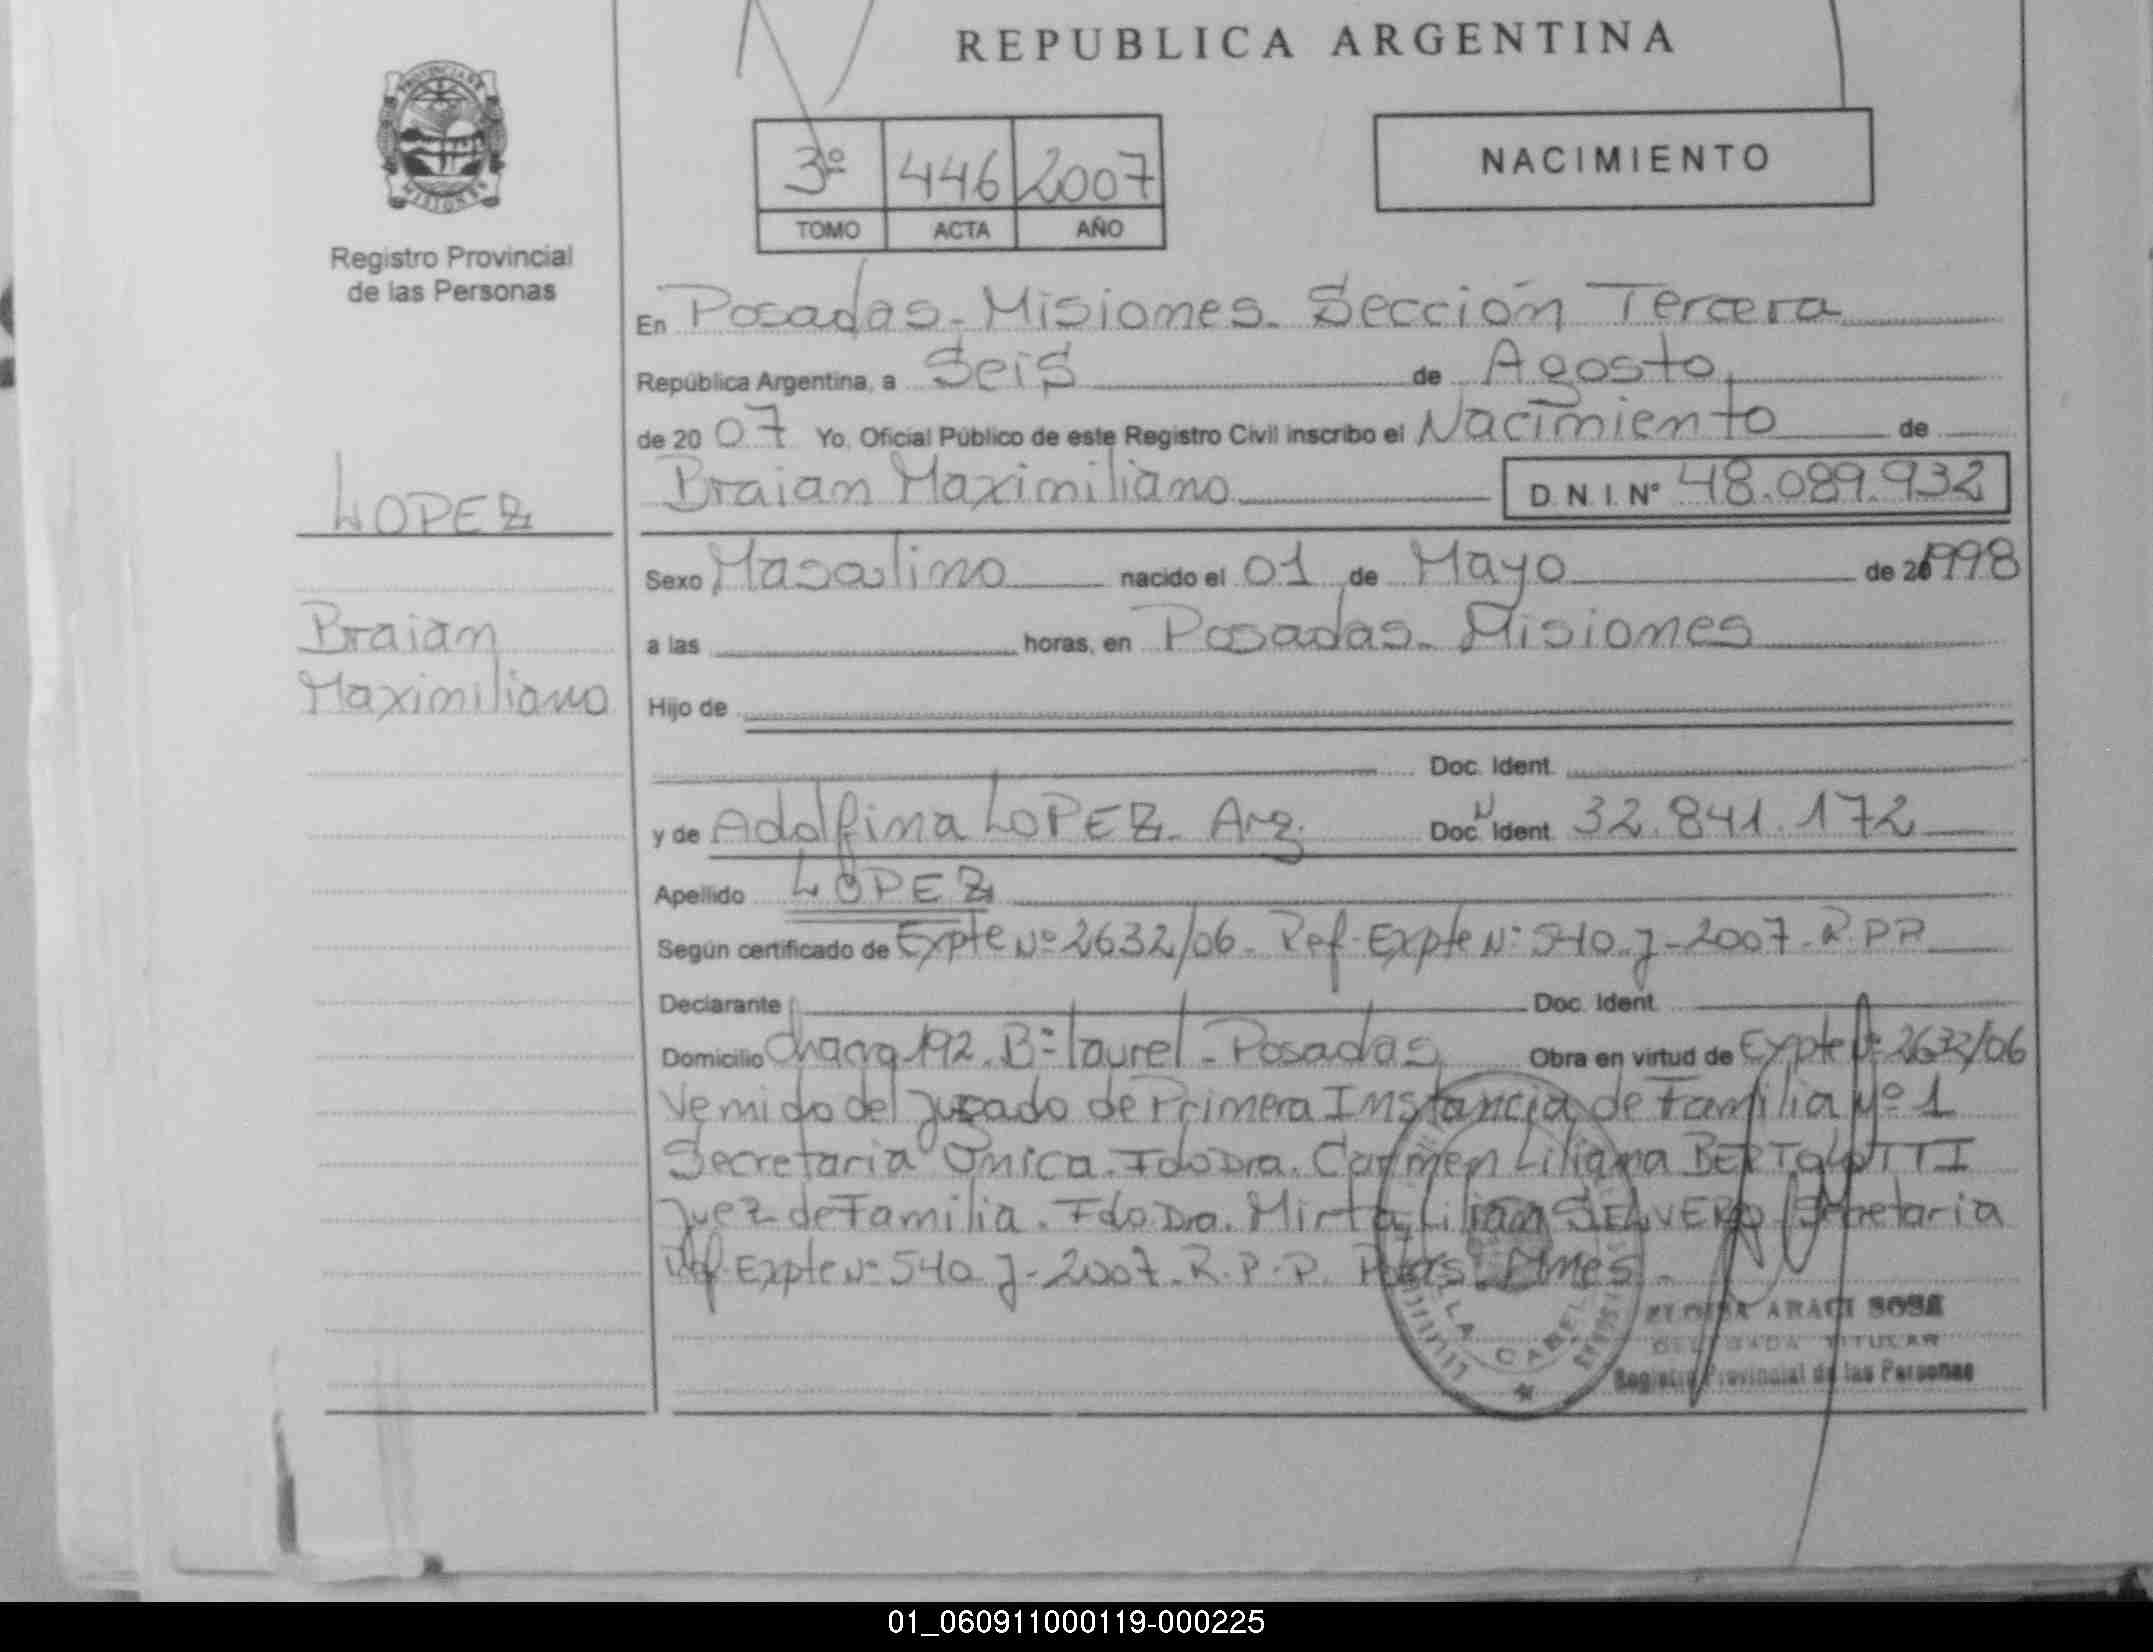 REPUBLICA ARGENTINA
PROVINCIA DE
MISIONES
Registro Provincial
de las Personas
3º 446 2007
TOMO ACTA AÑO
NACIMIENTO
En Posadas - Misiones - Sección Tercera
República Argentina, a Seis de Agosto
de 2007 Yo, Oficial Público de este Registro Civil inscribo el Nacimiento de
Braian Maximiliano D.N.I. Nº 48.089.932
LOPEZ
Sexo Masculino nacido el 01 de Mayo de 1998
Braian
Maximiliano
a las horas, en Posadas - Misiones
Hijo de
Doc. Ident.
y de Adolfina LOPEZ - Arg. Doc. N Ident. 32.841.172
Apellido LOPEZ
Según certificado de Expte Nº 2632/06 - Ref. Expte Nº 540-J-2007-R.P.P.
Declarante Doc. Ident.
Domicilio Chacra 192 - Bº Laurel - Posadas Obra en virtud de Expte Nº 2632/06
Venido del Juzgado de Primera Instancia de Familia Nº 1
Secretaria Única. Fdo Dra. Carmen Liliana BERTOLOTTI
Juez de Familia. Fdo Dra. Mirta Lilian Secretaria
Ref. Expte Nº 540-J-2007-R.P.P. Pdas. Mnes.
ARACI SOSA
DELEGADA TITULAR
Registro Provincial de las Personas
01_060911000119-000225